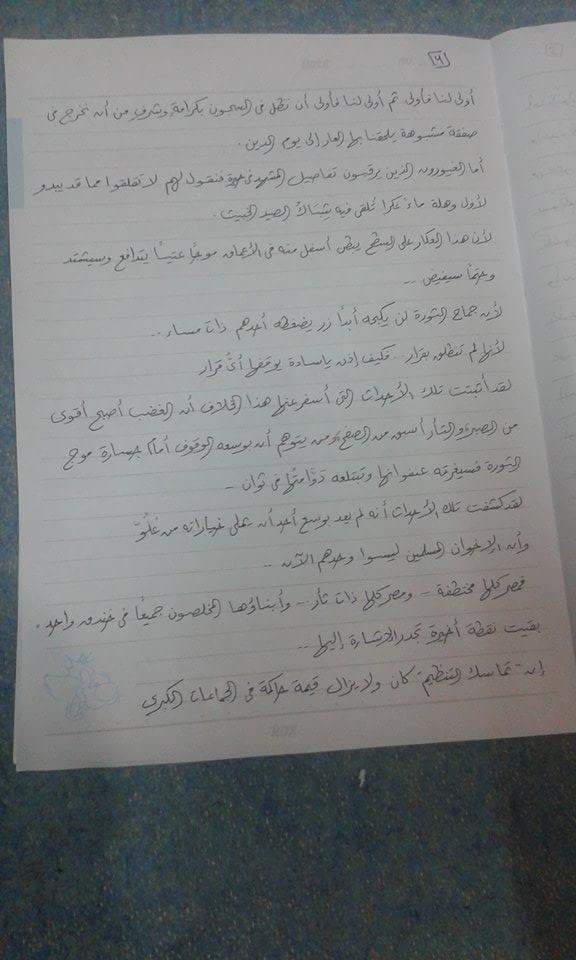 ٦
أولى لنا فأولى ثم أولى لنا فأولى أن نظل فى السجون بكرامة وشرف من أن نخرج فى
صفقة مشبوهة يلحقنا بها العار إلى يوم الدين .
أما الغيورون الذين يرقبون تفاصيل المشهد فى حيرة فنقول لهم لا تقلقوا مما قد يبدو
لأول وهلة ماءً عكرا تُلقى فيه شِبَاكُ الصيد الخبيث .
لأن هذا العكار على السطح يبطن أسفل منه فى الأعماق موجًا عتيًا يتدافع وسيشتد
وحتمًا سيفيض ..
لأن جماح الثورة لن يكبحه أبدًا زر يضغطه أحدهم ذات مساء ..
لأنها لم تنطلق بقرار .. فكيف إذن ياسادة يوقفها أىُّ قرار
لقد أثبتت تلك الأحداث التى أسفر عنها هذا الخلاف أن الغضب أصبح أقوى
من الصبر والثأر أسبق من الصفح ومن يتوهم أن بوسعه الوقوف أمام جسارة موج
الثورة فسيغرقه عنفوانها وتبتلعه دوَّامتُها فى ثوان ..
لقد كشفت تلك الأحداث أنه لم يعد بوسع أحد أن يملى خياراته من عُلُوّ
وأن الإخوان المسلمين ليسوا وحدهم الآن ..
فمصر كلها مختطفة .. ومصر كلها ذات ثأر .. وأبناؤها المخلصون جميعًا فى خندق واحد .
بقيت نقطة أخيرة تجدر الإشارة إليها ..
إن تماسك التنظيم كان ولا يزال قيمة حاكمة فى الجماعات الكبرى
ROX